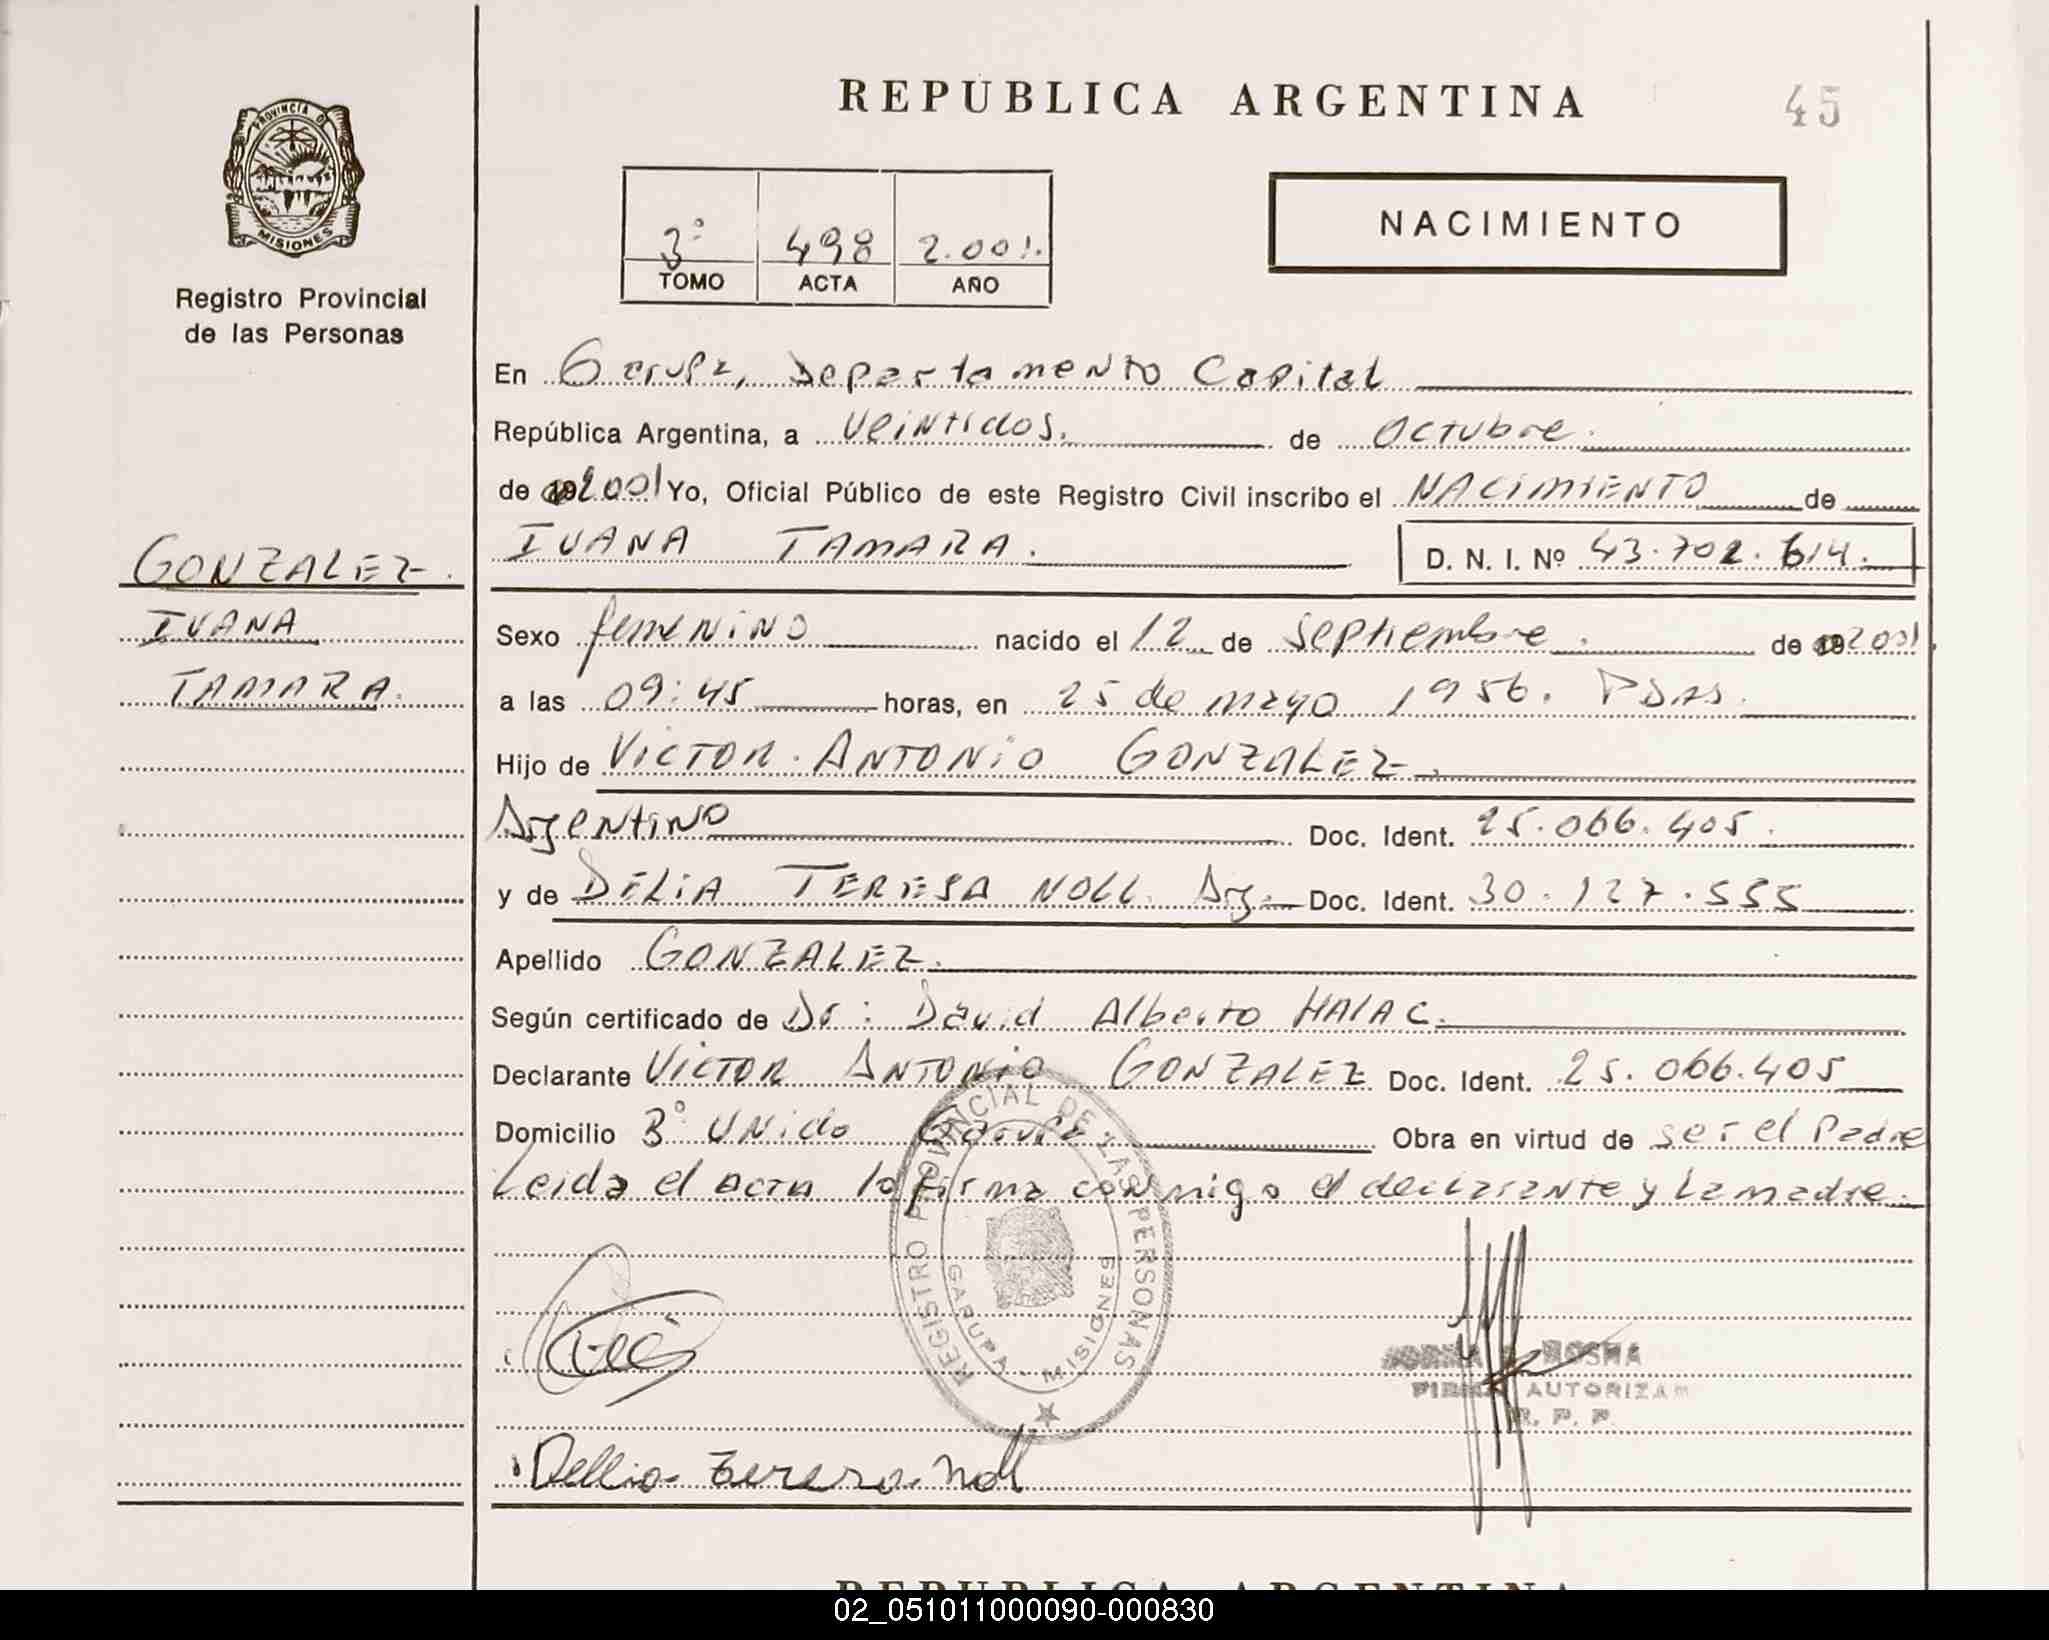 REPUBLICA ARGENTINA
45
PROVINCIA DE
MISIONES
Registro Provincial
de las Personas
3º 498 2.001.
TOMO ACTA AÑO
NACIMIENTO
En Garupa, Departamento Capital
República Argentina, a veintidos. de octubre.
de 2001 Yo, Oficial Público de este Registro Civil inscribo el NACIMIENTO de
IVANA TAMARA. D. N. I. Nº 43.702.614.
GONZALEZ.
IVANA
TAMARA.
Sexo femenino nacido el 12 de septiembre. de 2001.
a las 09:45 horas, en 25 de mayo 1956. PDAS.
Hijo de VICTOR ANTONIO GONZALEZ.
Argentino Doc. Ident. 25.066.405.
y de DELIA TERESA NOLL. Arg. Doc. Ident. 30.127.555
Apellido GONZALEZ.
Según certificado de Dr: David Alberto HALAC.
Declarante VICTOR ANTONIO GONZALEZ Doc. Ident. 25.066.405
Domicilio 3º Unido Garupa Obra en virtud de ser el Padre
Leida el acta la firma conmigo el declarante y La madre.
REGISTRO PROVINCIAL DE LAS PERSONAS
GARUPA - MISIONES
AUTORIZA
R. P. P.
Dellia Teresa Noll
REPUBLICA ARGENTINA
02_051011000090-000830